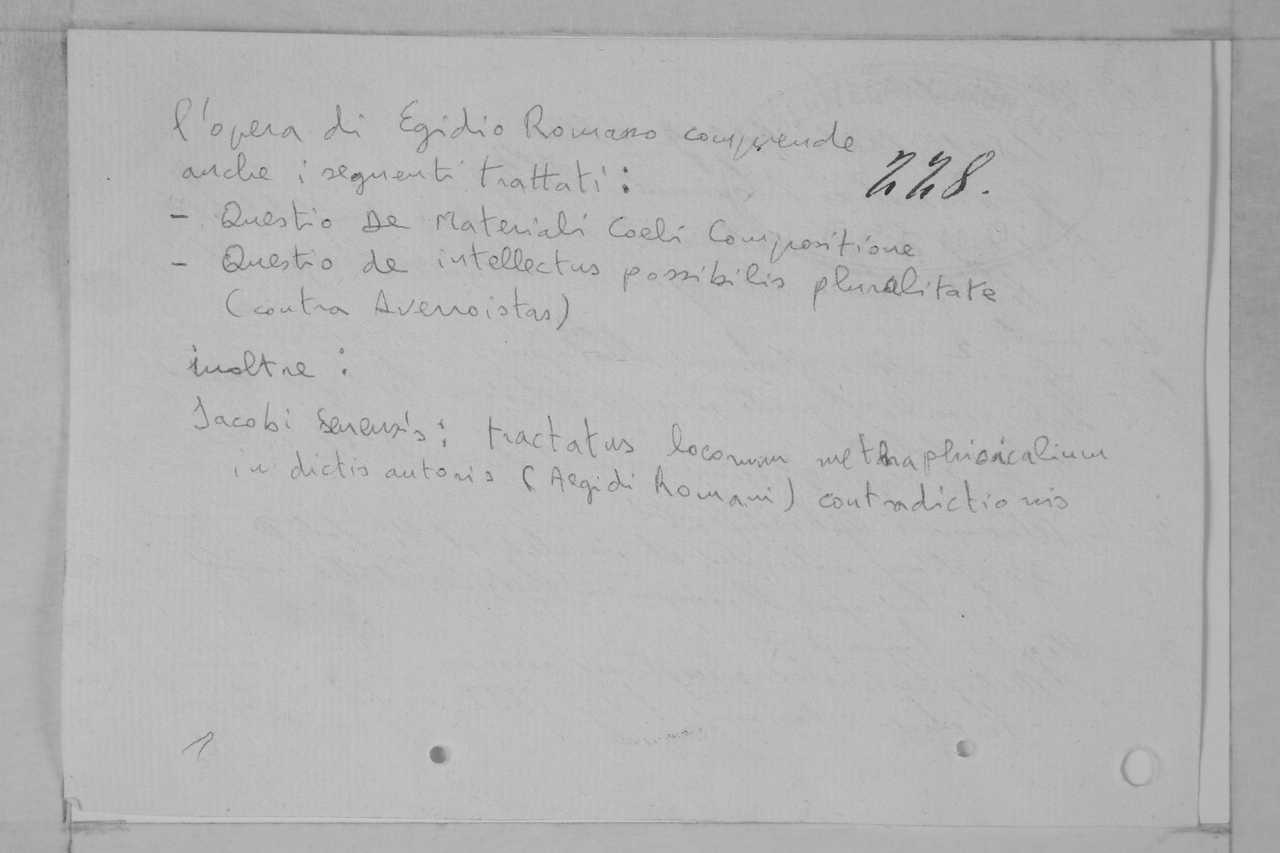 l'opera di Egidio Romano comprende
anche i seguenti trattati:
228.
- Questio De Materiali Coeli Compositione
- Questio de intellectus possibilis pluralitate
(contra Averroistas)
inoltre:
Jacobi Senensis: tractatus locorum methaphisicalium
in dictis autoris (Aegidi Romani) contradictionis
1